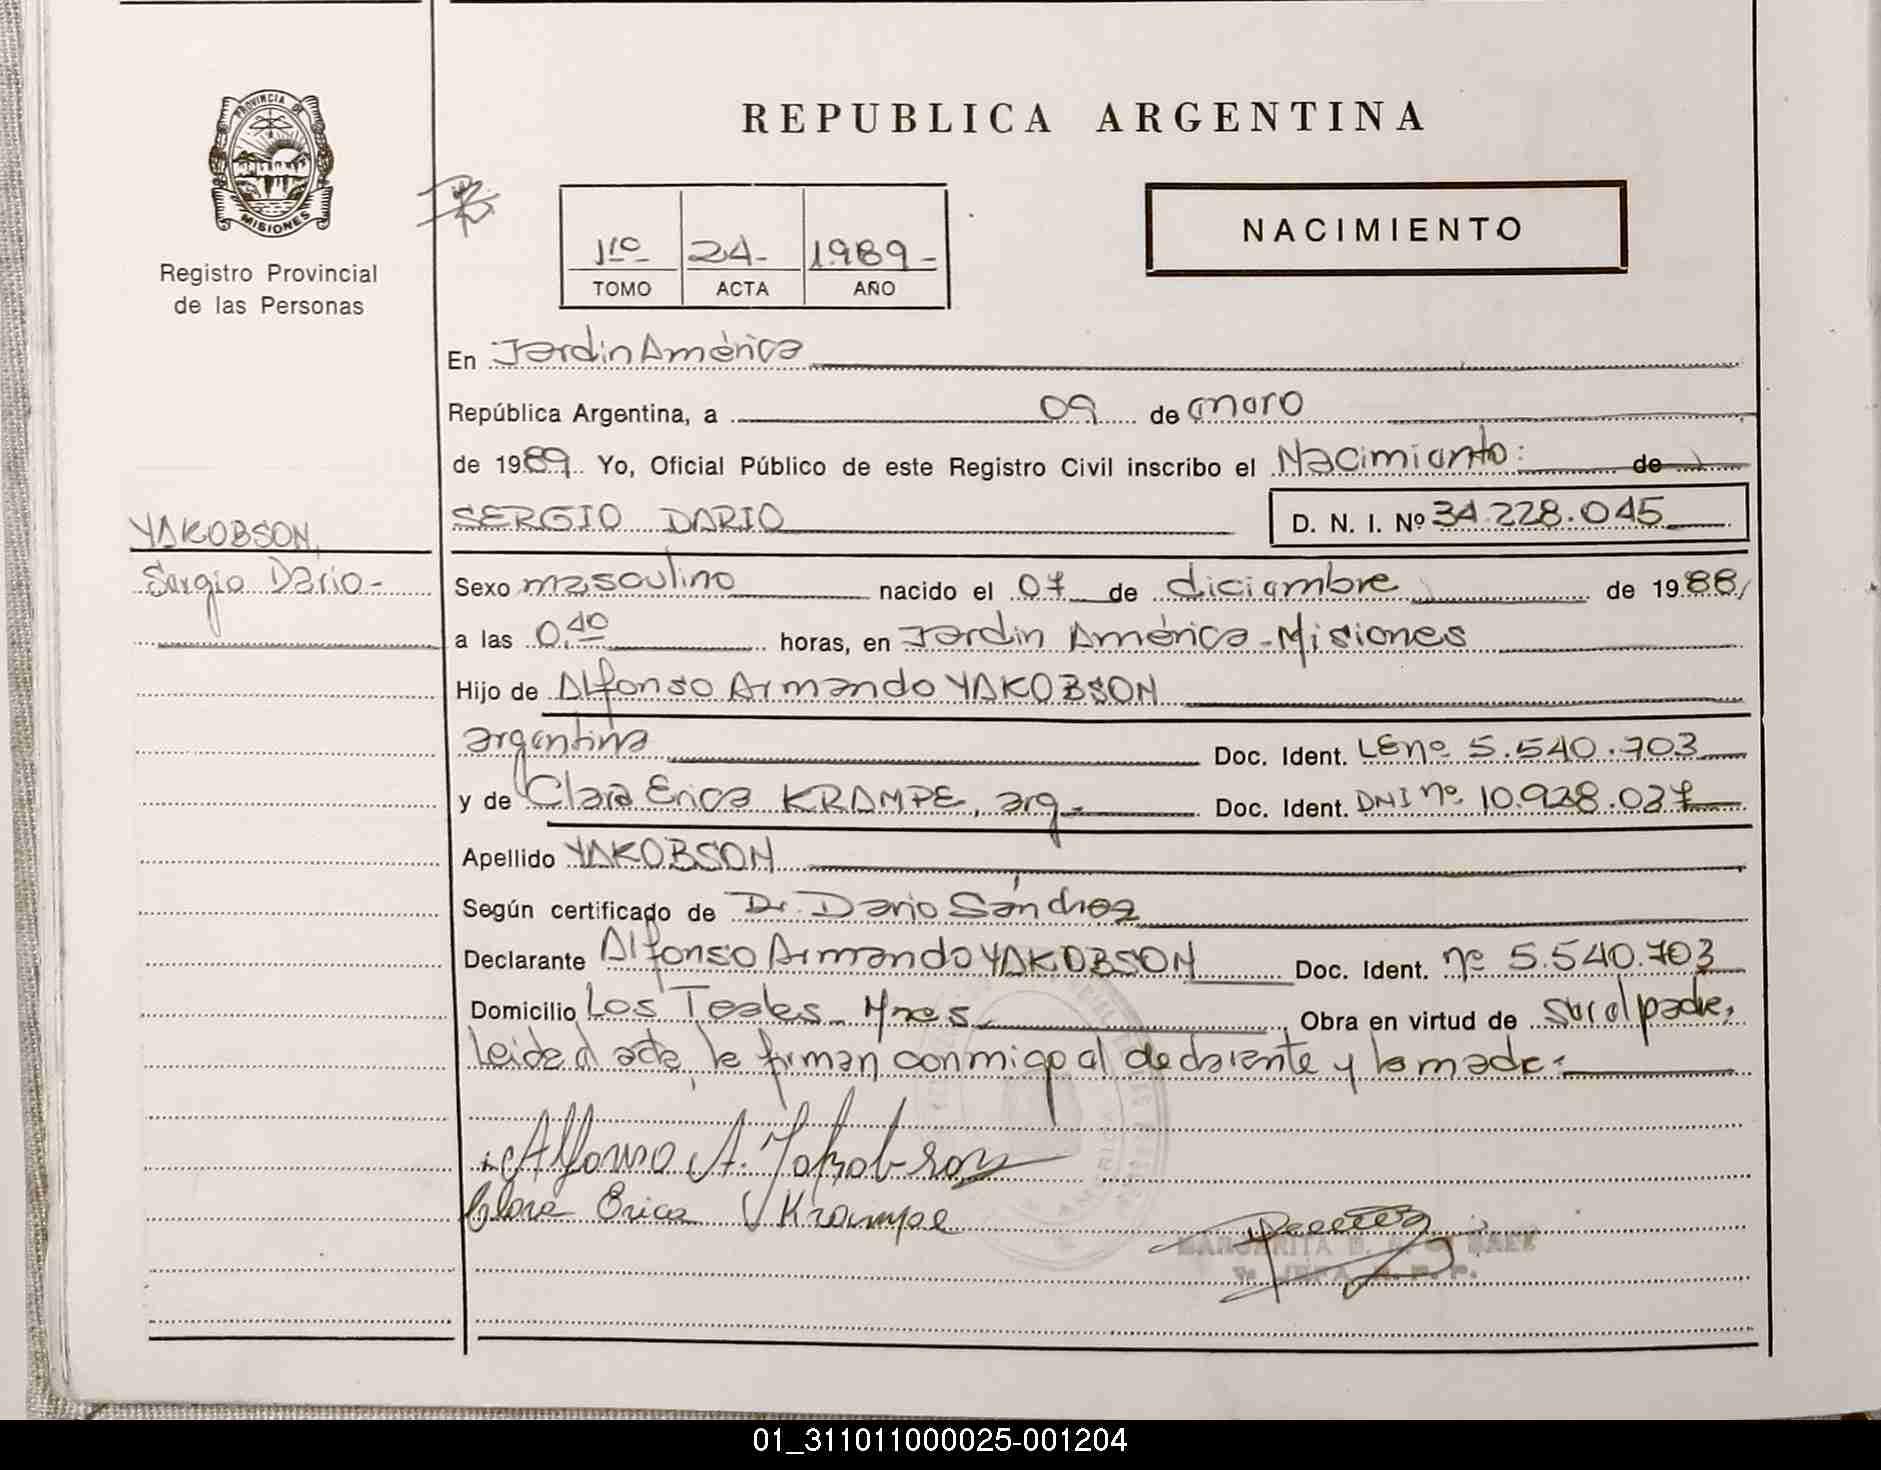 REPUBLICA ARGENTINA
PROVINCIA DE
MISIONES
Registro Provincial
de las Personas
NACIMIENTO
1ro 24- 1989-
TOMO ACTA AÑO
En Jardin América
República Argentina, a 09 de enero
de 1989 Yo, Oficial Público de este Registro Civil inscribo el Nacimiento: de
YAKOBSON,
Sergio Dario-
SERGIO DARIO
D. N. I. Nº 34.228.045
Sexo masculino nacido el 07 de diciembre de 1988/
a las 0,40 horas, en Jardin América-Misiones
Hijo de Alfonso Armando YAKOBSON
argentina Doc. Ident. LE nº 5.540.703
y de Clara Erica KRAMPE, arg- Doc. Ident. DNI nº 10.928.027
Apellido YAKOBSON
Según certificado de Dr. Dario Sánchez
Declarante Alfonso Armando YAKOBSON Doc. Ident. nº 5.540.703
Domicilio Los Teales - Mnes Obra en virtud de ser el padre,
leida el acta, la firman conmigo el declarante y la madre-
Alfonso A. Yakobson
Clara Erica V Krampe
MARGARITA
01_311011000025-001204